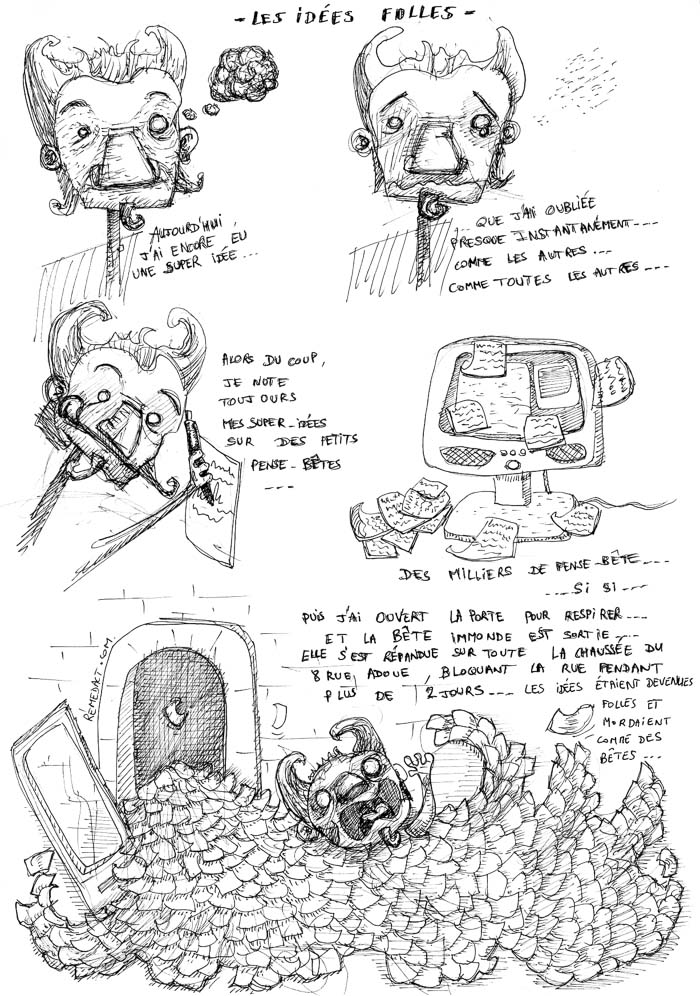 - LES IDÉES FOLLES -
AUJOURD'HUI,
J'AI ENCORE EU
UNE SUPER IDÉE ...
QUE J'AI OUBLIÉE
PRESQUE INSTANTANÉMENT....
COMME LES AUTRES ...
COMME TOUTES LES AUTRES ...
ALORS DU COUP,
JE NOTE
TOUJOURS
MES SUPER-IDÉES
SUR DES PETITS
PENSE-BÊTES
....
DES MILLIERS DE PENSE-BÊTE....
.... SI SI ....
PUIS J'AI OUVERT LA PORTE POUR RESPIRER....
ET LA BÊTE IMMONDE EST SORTIE ....
ELLE S'EST RÉPANDUE SUR TOUTE LA CHAUSSÉE DU
8 RUE ADOUE, BLOQUANT LA RUE PENDANT
PLUS DE 2 JOURS.... LES IDÉES ÉTAIENT DEVENUES
FOLLES ET
MORDAIENT
COMME DES
BÊTES ...
REMEDACT.COM